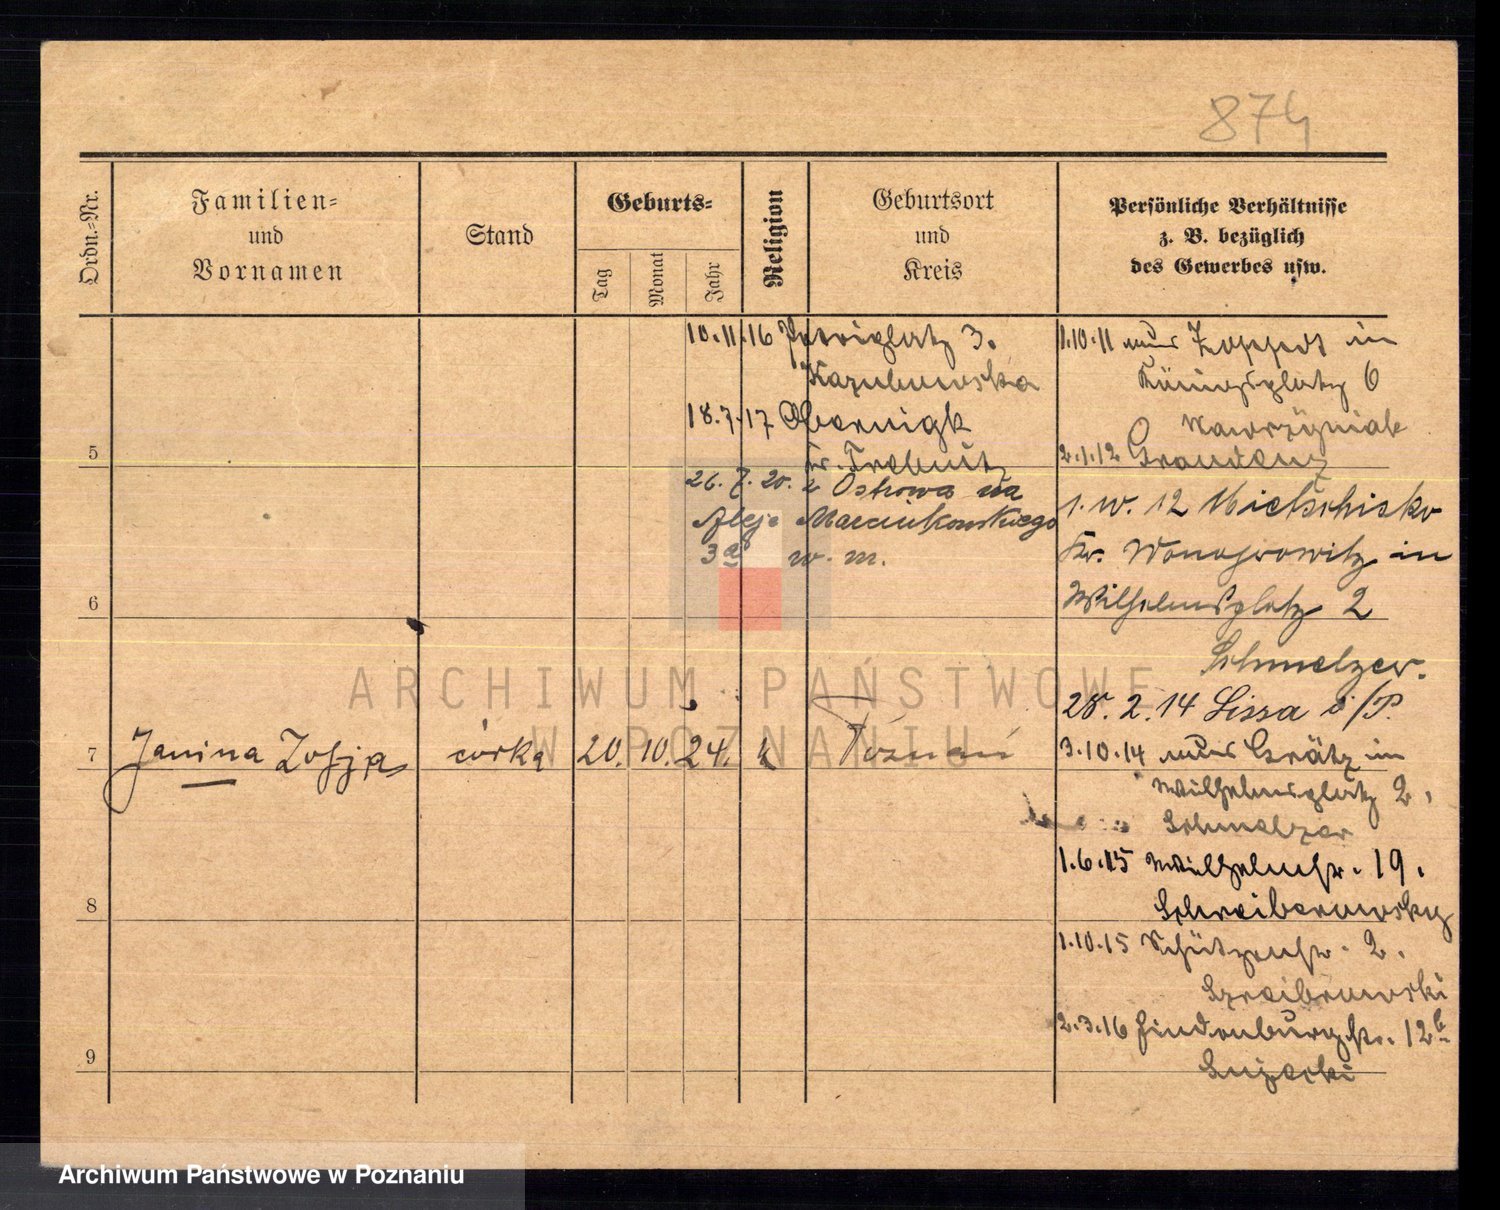 874
Ordn.-Nr.
Familien-
und
Vornamen
Stand
Geburts-
Tag
Monat
Jahr
Religion
Geburtsort
und
Kreis
Persönliche Verhältnisse
z. B. bezüglich
des Gewerbes usw.
10.11.16 Petriplatz 3.
Kazubowska
18.7.17 Obernigk
Kr. Trebnitz
26. 7. 20. z Ostrowa na
Aleje Marcinkowskiego
3a w. m.
1.10.11 aus Zoppot in
Königsplatz 6
Wawrzyniak
2.1.12 Graudenz
1. IV. 12 Mietschisko
Kr. Wongrowitz in
Wilhelmsplatz 2
Schmelzer.
28. 2. 14 Lissa i/P.
3.10.14 aus Grätz in
Wilhelmsplatz 2.
Schmelzer
1.6.15 Wilhelmstr. 19.
Schreiberowsky
1.10.15 Schützenstr. 2.
Szreibrowski
2.3.16 Hindenburgstr. 12b
5
6
7 Janina Zofja córka 20. 10. 24. k Poznań
8
9
ARCHIWUM PAŃSTWOWE
W POZNANIU
Archiwum Państwowe w Poznaniu